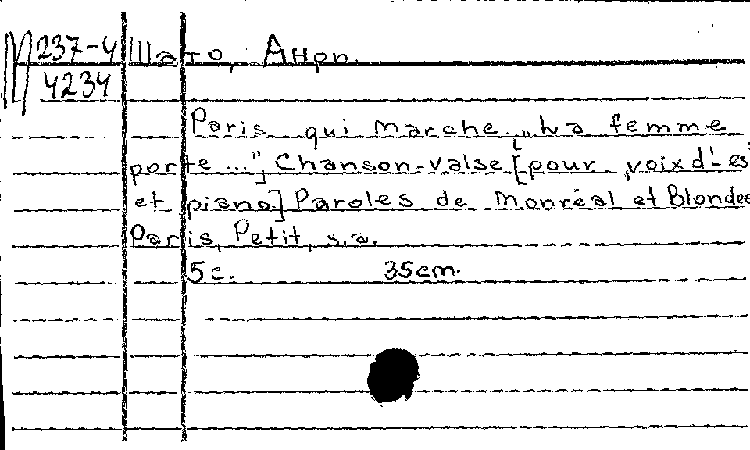 М 237-4 Шато, Анри.
4234
Paris qui marche „La femme
porte..."[Chanson-valse[pour voix d'-es
et piano] Paroles de Monréal et Blondea
Paris, Petit, s.a.
5c. 35cm.